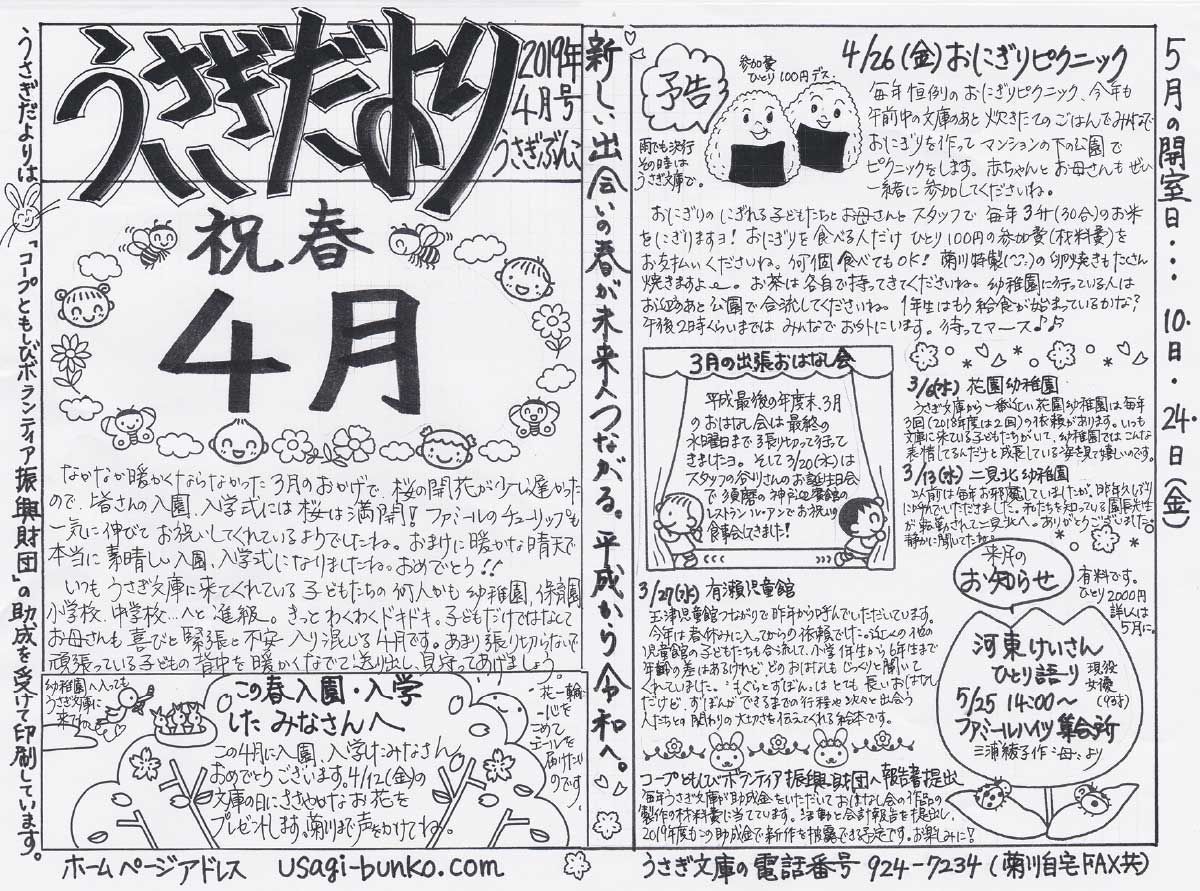 うさぎだより
2019年
4月号
うさぎぶんこ
うさぎだよりは「コープともしびボランティア振興財団」の助成を受けて印刷しています。
祝春
4月
なかなか暖かくならなかった3月のおかげで、桜の開花が少し遅かった
ので、皆さんの入園、入学式には桜は満開!ファミールのチューリップも
一気に伸びてお祝いしてくれているようでしたね。おまけに暖かな晴天で
本当に素晴しい入園、入学式になりましたね。おめでとう!!
いつもうさぎ文庫に来てくれている子どもたちの何人かも幼稚園、保育園
小学校、中学校…へと進級。きっとわくわくドキドキ。子どもだけではなくて
お母さんも喜びと緊張と不安入り混じる4月です。あまり張り切らないで
頑張っている子どもの背中を暖かくなでて送り出し、見守ってあげましょう。
幼稚園へ入っても
うさぎ文庫に
来てね。
この春入園・入学
したみなさんへ
この4月に入園、入学したみなさん
おめでとうございます。4/12(金)の
文庫の日にささやかなお花を
プレゼントします。菊川まで声をかけてね。
花一輪
に心を
こめて
エールを
届けたい
のです。
ホームページアドレス usagi-bunko.com
新しい出会いの春が未来へつながる。平成から令和へ。
予告
参加費
ひとり100円デス。
雨でも決行
その時は
うさぎ文庫で。
4/26(金)おにぎりピクニック
毎年恒例のおにぎりピクニック、今年も
午前中の文庫のあと炊きたてのごはんでみんなで
おにぎりを作ってマンションの下の公園で
ピクニックをします。赤ちゃんとお母さんもぜひ
一緒に参加してくださいね。
おにぎりのにぎれる子どもたちとお母さんとスタッフで毎年3升(30合)のお米
をにぎりますヨ!おにぎりを食べる人だけひとり100円の参加費(材料費)を
お支払いくださいね。何個食べてもOK!菊川特製(^^)の卵焼きもたくさん
焼きますよ〜。お茶は各自で持ってきてくださいね。幼稚園に行っている人は
お迎えのあと公園で合流してくださいね。1年生はもう給食が始まっているかな?
午後2時くらいまではみんなでお外にいます。待ってマース♪♪
3月の出張おはなし会
平成最後の年度末、3月
のおはなし会は最終の
水曜日まで張り切って行って
きましたヨ。そして3/20(水)は
スタッフの谷川さんのお誕生日会
で須磨の神戸迎賓館の
レストランル・アンでお祝いの
食事会してきました!
3/6(水)花園幼稚園
うさぎ文庫から一番近い花園幼稚園は毎年
3回(2018年度は2回)の依頼があります。いつも
文庫に来ている子どもたちがいて、幼稚園ではこんな
表情してるんだナと成長している姿を見て嬉しいのです。
3/13(水)二見北幼稚園
以前は毎年お邪魔していましたが、昨年久しぶり
に呼んでいただきました。私たちを知っている園長先生
が転勤されて二見北へ。ありがとうございました。
静かに聞いてたね。
3/27(水)有瀬児童館
玉津児童館つながりで昨年から呼んでいただいています。
今年は春休みに入ってからの依頼でした。近くの他の
児童館の子どもたちも合流して、小学1年生から6年生まで
年齢の差はあるけれど、どのおはなしもじっくりと聞いて
くれていました。「もぐらとずぼん」はとても長いおはなし
だけど、ずぼんができるまでの行程や次々と出会う
人たちとの関わりの大切さを伝えてくれる絵本です。
コープともしびボランティア振興財団へ報告書提出
毎年うさぎ文庫が助成金をいただいておはなし会の作品の
製作の材料費に当てています。活動と会計報告を提出し、
2019年度もこの助成金で新作を披露できる予定です。お楽しみに!
来月の
お知らせ
有料です。
ひとり2000円
詳しくは
5月に。
河東けいさん
ひとり語り
現役
女優
5/25 14:00〜
ファミールハイツ集会所
三浦綾子作「母」より
うさぎ文庫の電話番号 924-7234(菊川自宅FAX共)
5月の開室日・・・・10日・24日(金)